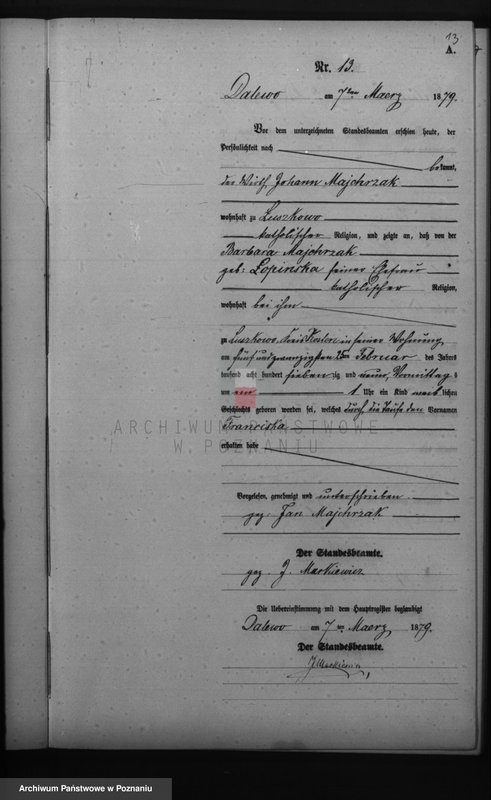 13
A.
Nr. 13.
Dalewo am 7ten Maerz 1879.
Vor dem unterzeichneten Standesbeamten erschien heute, der
Persönlichkeit nach
bekannt,
der Wirth Johann Majchrzak
wohnhaft zu Luszkowo
katholischer Religion, und zeigte an, daß von der
Barbara Majchrzak
geb: Lopinska seiner Ehefrau
katholischer Religion,
wohnhaft bei ihm
zu Luszkowo, Kreis Kosten in seiner Wohnung
am fünf und zwanzigsten 25ten Februar des Jahres
tausend acht hundert sieben zig und neun, Vormittag s
um ein 1 Uhr ein Kind weib lichen
Geschlechts geboren worden sei, welches durch die Taufe den Vornamen
Franciska
erhalten habe
ARCHIWUM PAŃSTWOWE
W POZNANIU
Vorgelesen, genehmigt und unterschrieben
gez. Jan Majchrzak
Der Standesbeamte.
gez. J. Markiewicz
Die Uebereinstimmung mit dem Hauptregister beglaubigt
Dalewo am 7ten Maerz 1879.
Der Standesbeamte.
JMarkiewicz
Archiwum Państwowe w Poznaniu